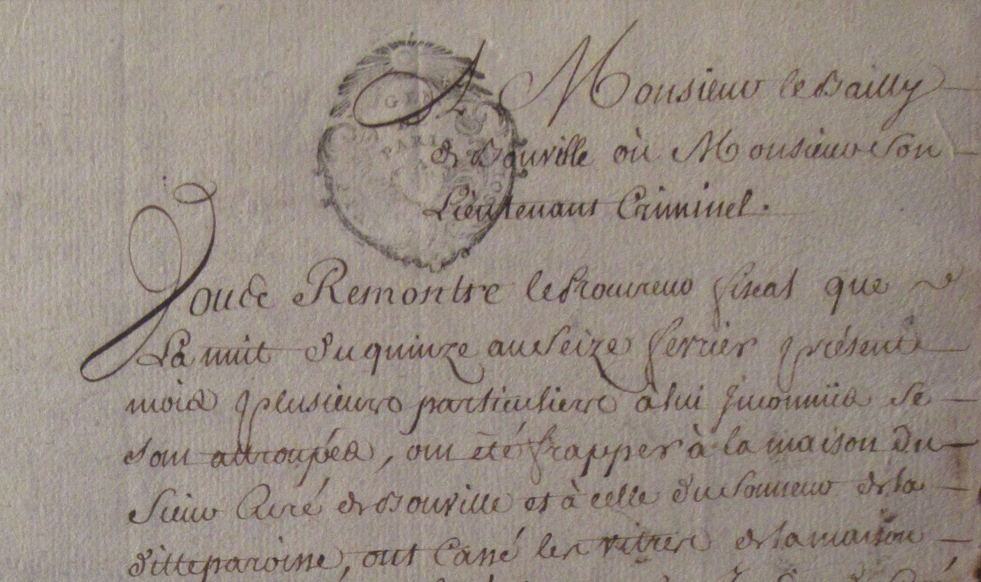 A Monsieur le Bailly
de Bouville ou Monsieur Son
Lieutenant Criminel.
GEN
PARIS
Vous Remontre le Procureur fiscal que
La nuit du quinze au Seize fevrier present
mois plusieurs particuliers à lui Inconnüs Se
sont attroupés, ont été frapper à la maison du
Sieur Curé de Bouville et à celle du Sonneur de la
ditte paroisse, ont Cassé les vitres de la maison